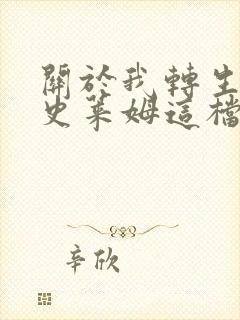 關於我轉生
史萊姆這檔
辛欣